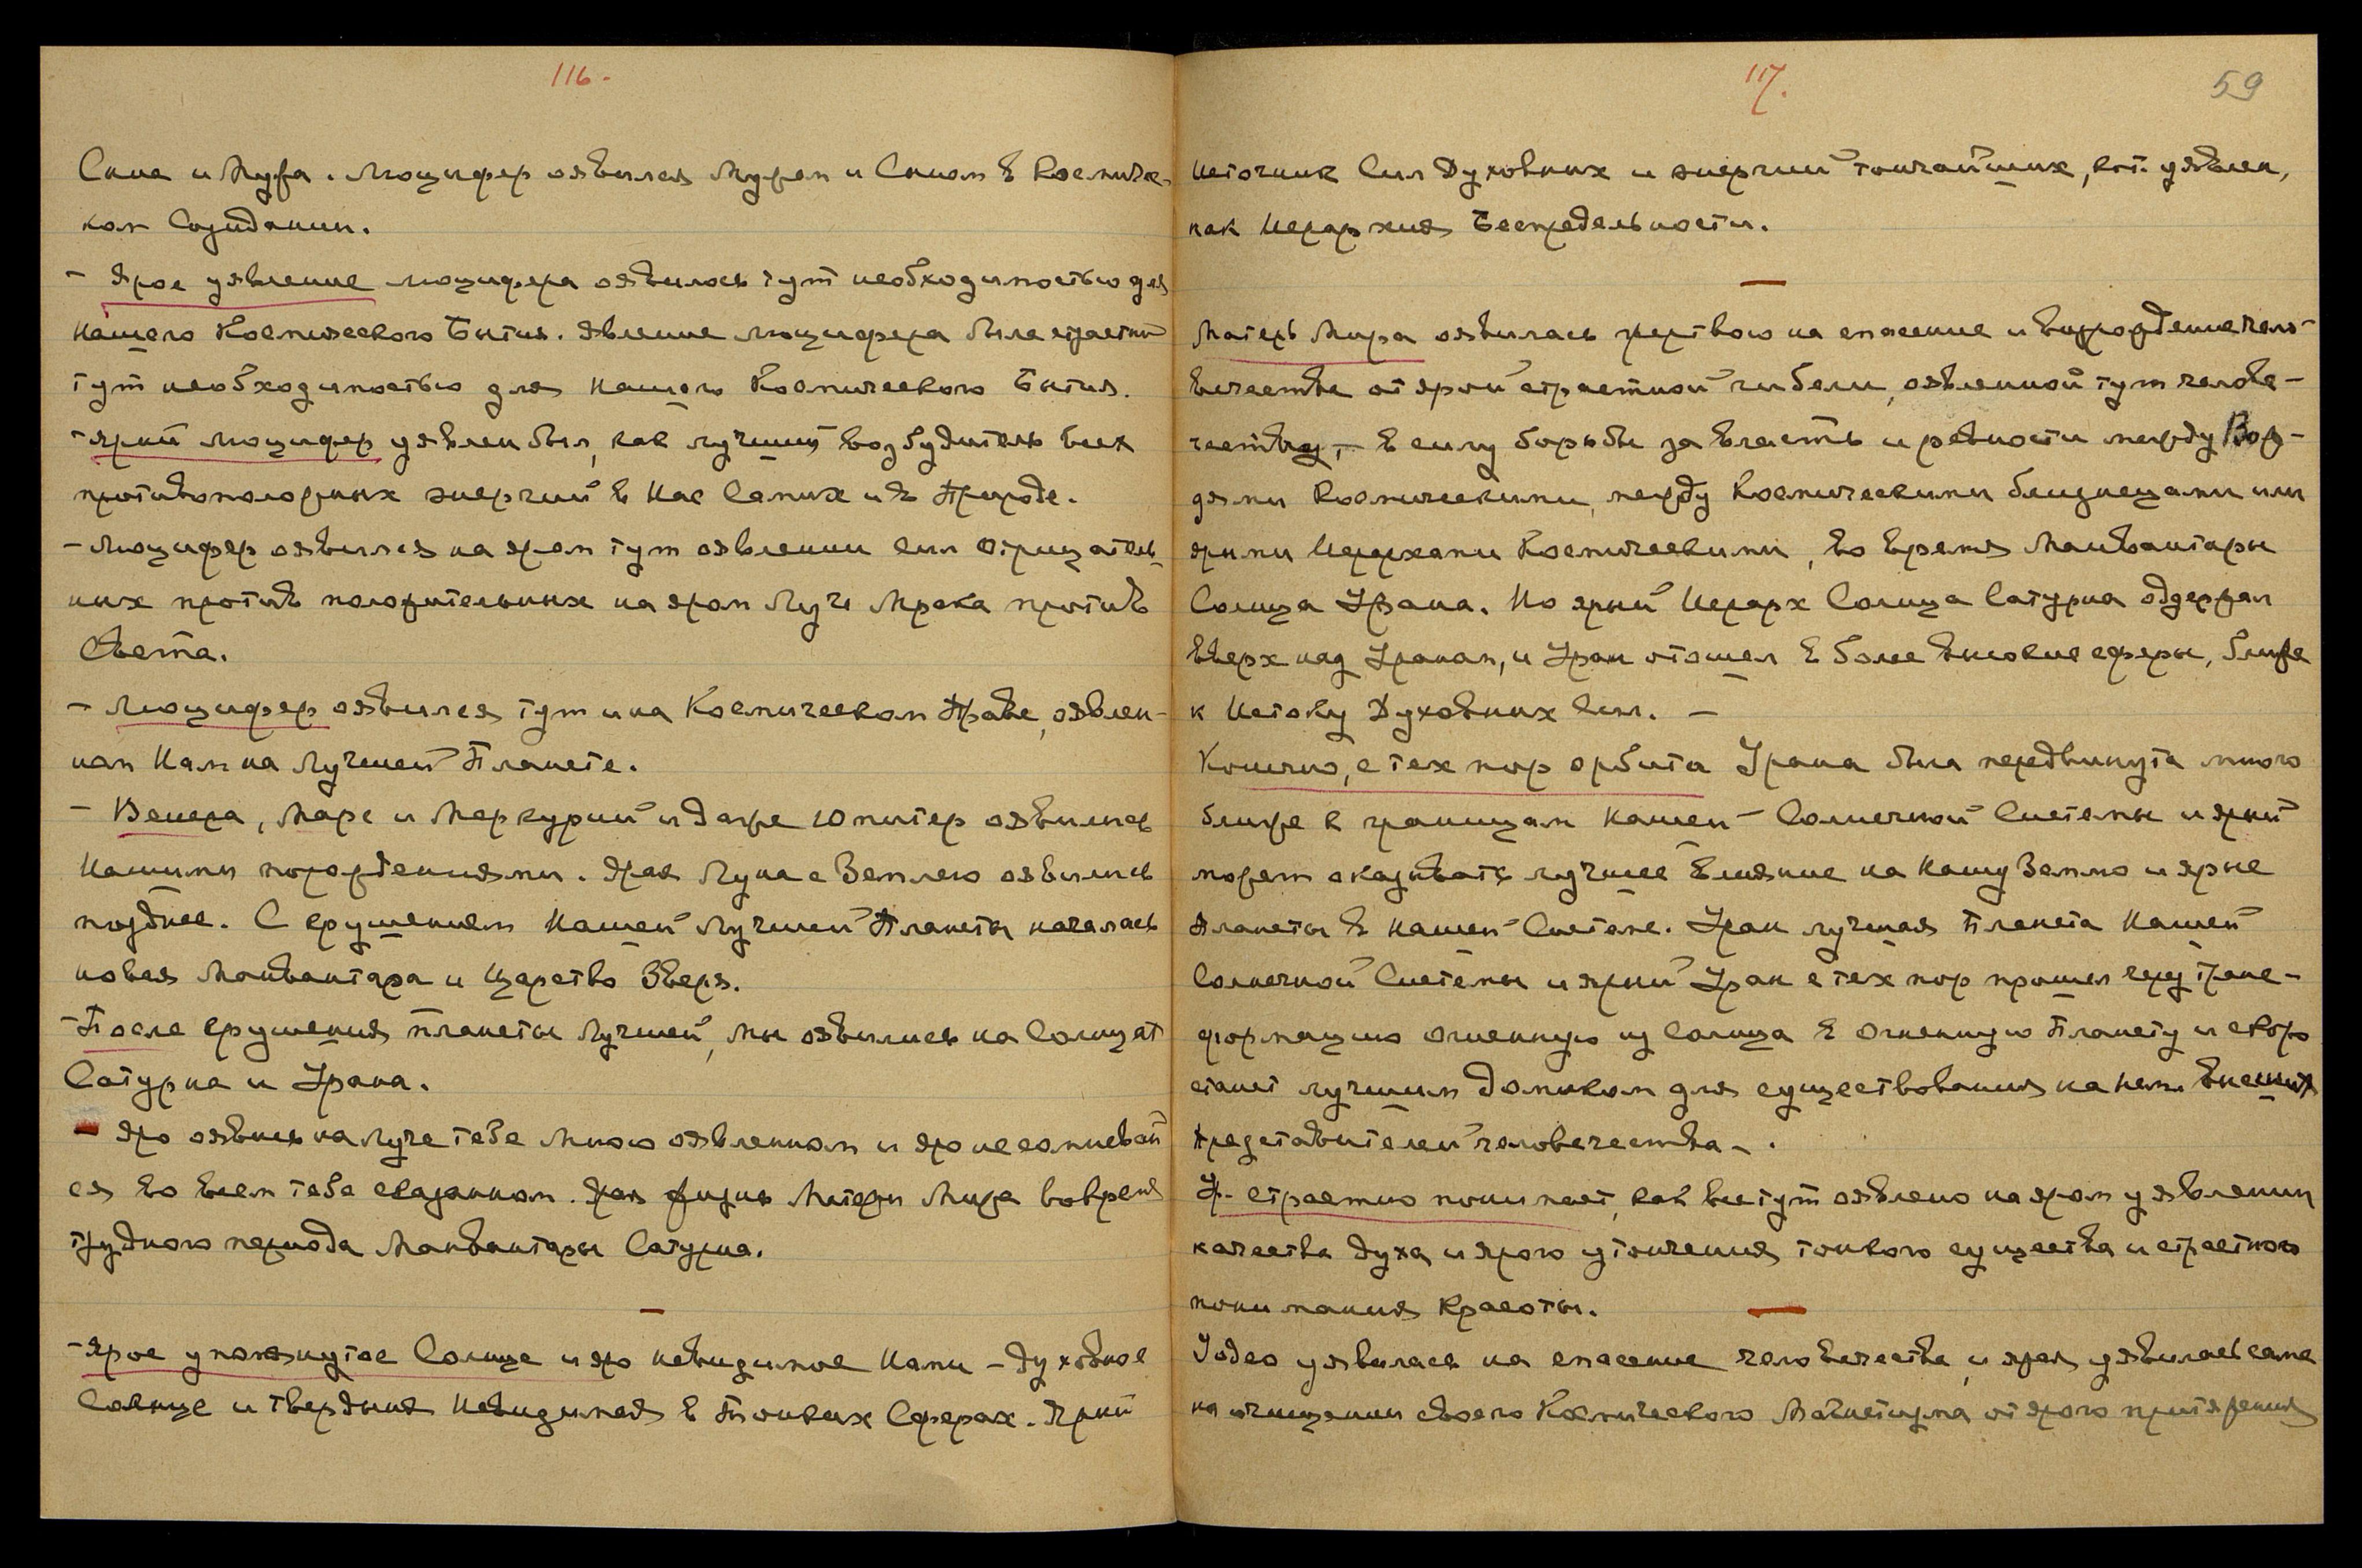 116.
Сына и Мужа. Люцифер оявился Мужем и Сыном в Космичес-
ком Созидании.
- Ярое уявление Люцифера оявилось тут необходимостью для
Нашего Космического Бытия. Явление Люцифера было страстной
тут необходимостью для Нашего Космического Бытия.
- Ярый Люцифер уявлен был, как лучший возбудитель всех
противоположных энергий в Нас Самих и в Природе.
- Люцифер оявился на яром тут оявлении сил отрицатель-
ных против положительных на яром Луче Мрака против
Света.
- Люцифер оявился тут и на Космическом Праве, оявлен-
ном Нам на Лучшей Планете.
- Венера, Марс и Меркурий и даже Юпитер оявились
Нашими порождениями. Ярая Луна с Землею оявились
позднее. С крушением Нашей Лучшей Планеты началась
новая Манвантара и Царство Зверя.
- После крушения планеты Лучшей, мы оявились на Солнцах
Сатурна и Урана.
- Яро оявись на Луче тебе Мною оявленном и яро не сомневай
ся во всем тебе сказанном. Ярая жизнь Матери Мира во время
трудного периода Манвантары Сатурна.
- Ярое упомянутое Солнце и яро невидимое Нами - Духовное
Солнце и твердыня Невидимая в Тонких Сферах. Ярый
117.
59
Источник Сил Духовных и энергий тончайших, кот. уявлен,
как Иерархия Беспредельности.
Матерь Мира оявилась жертвою на спасение и возрождение чело-
вечества от ярой страстной гибели, оявленной тут челове-
честву, - в силу борьбы за власть и ревности между Вож-
дями Космическими, между Космическими близнецами или
ярыми Иерархами Космическими, во время Манвантары
Солнца Урана. Но ярый Иерарх Солнца Сатурна одержал
вверх над Ураном, и Уран отошел в более высокие сферы, ближе
к Истоку Духовных Сил. -
Конечно, с тех пор орбита Урана была передвинута много
ближе к границам Нашей Солнечной Системы и ярый
может оказывать лучшее влияние на Нашу Землю и ярые
Планеты в Нашей Системе. Уран лучшая Планета Нашей
Солнечной Системы и ярый Уран с тех пор прошел через транс-
формацию огненную из Солнца в Огненную Планету и скоро
станет лучшим домиком для существования на нем высших
представителей человечества -.
У. страстно понимает, как все тут оявлено на яром уявлении
качества духа и ярого утончения тонкого существа и страстного
понимания Красоты.
Iодео уявилась на спасение человечества, и ярая уявилась сама
на очищении своего Космического Магнетизма от ярого притяжения